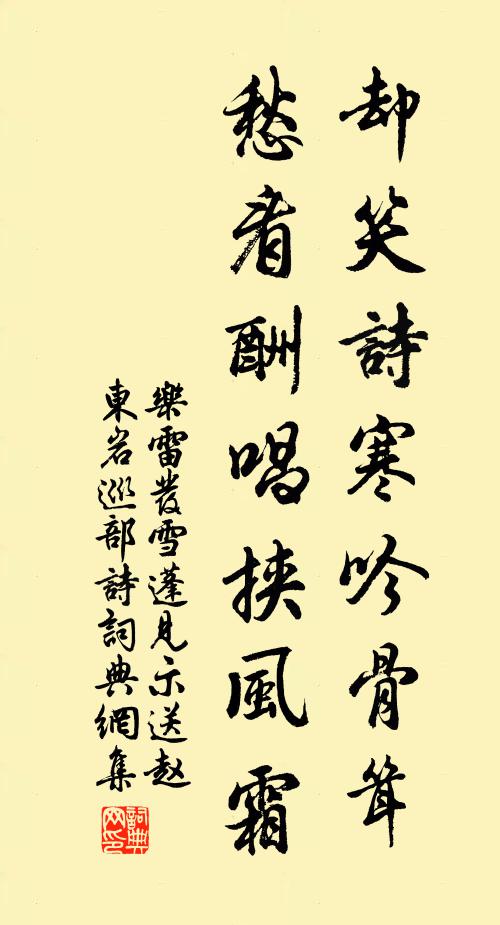 却笑詩寒吟骨耸
愁看酬唱挾風霜
樂雷發雪蓬見示送赵
東岩巡部詩詞典網集
詞典
网印